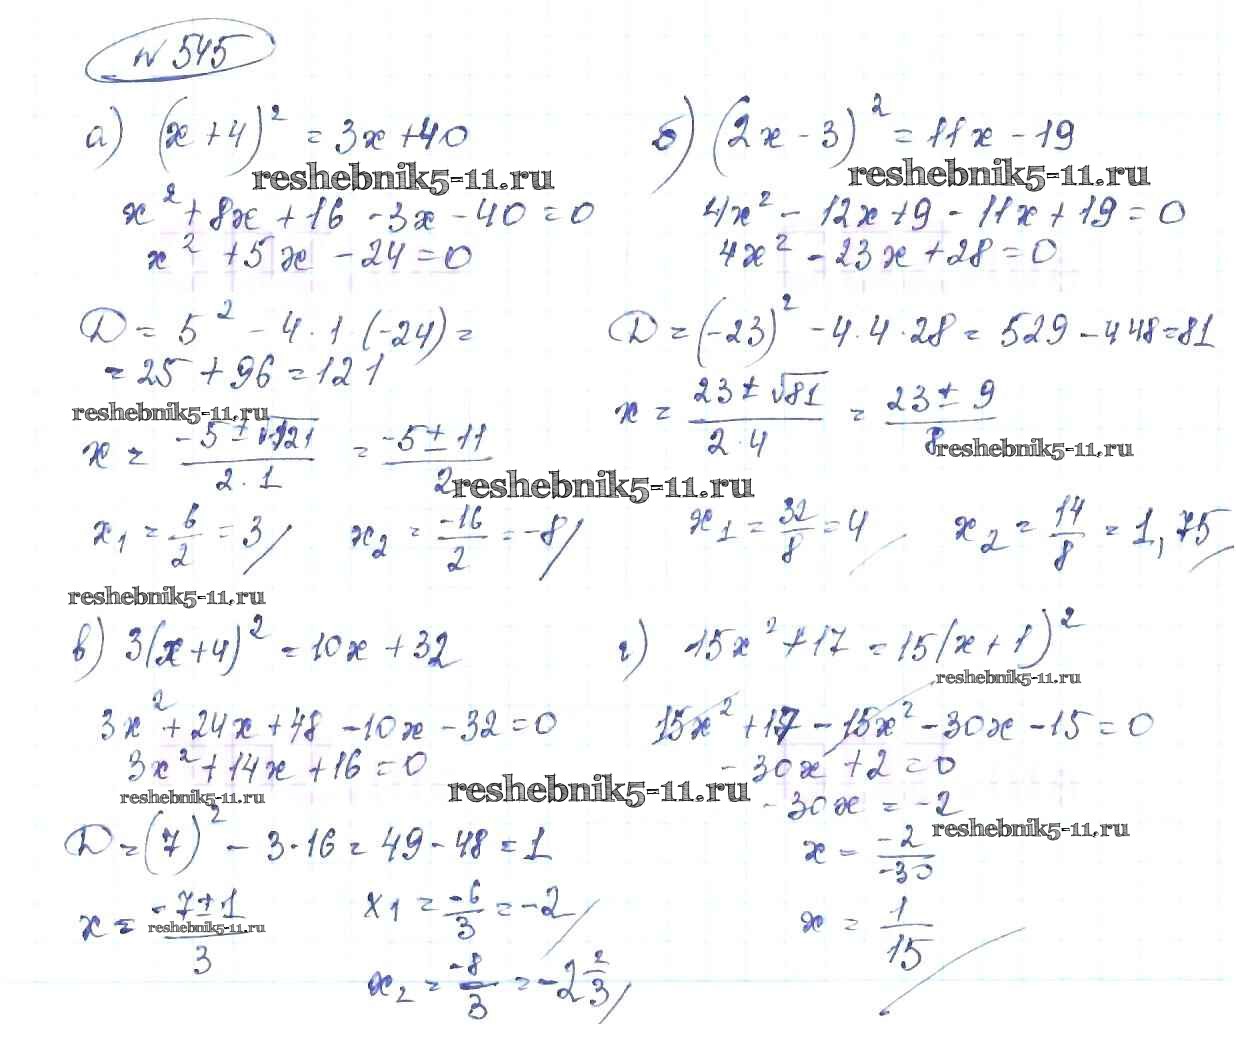 № 545
а) (x+4)² = 3x+40
reshebnik5-11.ru
x² + 8x + 16 - 3x - 40 = 0
x² + 5x - 24 = 0
D = 5² - 4·1·(-24) =
= 25 + 96 = 121
reshebnik5-11.ru
x = (-5 ± √121)/(2·1) = (-5 ± 11)/2
reshebnik5-11.ru
x₁ = 6/2 = 3/ x₂ = -16/2 = -8/
reshebnik5-11.ru
б) (2x - 3)² = 11x - 19
reshebnik5-11.ru
4x² - 12x + 9 - 11x + 19 = 0
4x² - 23x + 28 = 0
D = (-23)² - 4·4·28 = 529 - 448 = 81
x = (23 ± √81)/(2·4) = (23 ± 9)/8
reshebnik5-11.ru
x₁ = 32/8 = 4 x₂ = 14/8 = 1,75
в) 3(x+4)² = 10x + 32
3x² + 24x + 48 - 10x - 32 = 0
3x² + 14x + 16 = 0
reshebnik5-11.ru
reshebnik5-11.ru
D = (7)² - 3·16 = 49 - 48 = 1
x = (-7 ± 1)/3
reshebnik5-11.ru
x₁ = -6/3 = -2/
x₂ = -8/3 = -2 2/3/
г) 15x² + 17 = 15(x+1)²
reshebnik5-11.ru
15x² + 17 - 15x² - 30x - 15 = 0
-30x + 2 = 0
-30x = -2
reshebnik5-11.ru
x = -2/-30
x = 1/15